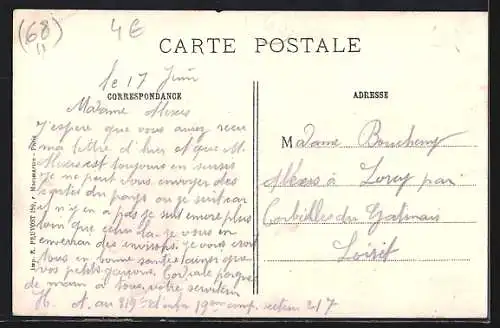 (68)
11
4€
CARTE POSTALE
le 17 Juin
CORRESPONDANCE
ADRESSE
Madame
J'espère que vous avez reçu
ma lettre d'hier et que M.
est toujours en sursis
je ne peut vous envoyer des
cartes du pays ou je suit car
il n'y en a pas je suit encore plus
loin que celui là je vous en
enverrai des environs je vous crois
tous en bonne santée ainsi que
vos petits garçons. Cordiale poignée
de main a tous, votre serviteur
H. A. au 219e d'inf 19em comp. section 217
Madame Bouchemy
à Lorcy par
Corbeilles du Gatinais
Loiret
Imp. E. PRUVOST